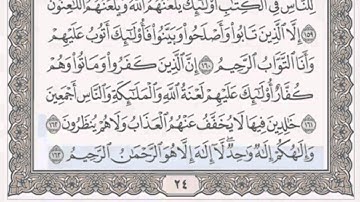 لِلنَّاسِ فِي الْكِتَٰبِ أُوْلَٰٓئِكَ يَلْعَنُهُمُ اللَّهُ وَيَلْعَنُهُمُ اللَّٰعِنُونَ
١٥٩ إِلَّا الَّذِينَ تَابُوا۟ وَأَصْلَحُوا۟ وَبَيَّنُوا۟ فَأُو۟لَٰٓئِكَ أَتُوبُ عَلَيْهِمْ
وَأَنَا التَّوَّابُ الرَّحِيمُ ١٦٠ إِنَّ الَّذِينَ كَفَرُوا۟ وَمَاتُوا۟ وَهُمْ
كُفَّارٌ أُو۟لَٰٓئِكَ عَلَيْهِمْ لَعْنَةُ اللَّهِ وَالْمَلَٰٓئِكَةِ وَالنَّاسِ أَجْمَعِينَ
١٦١ خَٰلِدِينَ فِيهَا لَا يُخَفَّفُ عَنْهُمُ الْعَذَابُ وَلَا هُمْ يُنظَرُونَ ١٦٢
وَإِلَٰهُكُمْ إِلَٰهٌ وَٰحِدٌ لَّآ إِلَٰهَ إِلَّا هُوَ الرَّحْمَٰنُ الرَّحِيمُ ١٦٣
٢٤